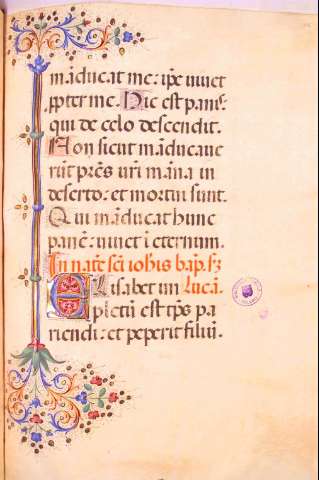 mãducat me: ip̃e uiuet
ꝓpter me. Hic est panis:
qui de celo descendit.
Non sicut mãducaue
rũt pr̃es uri mãna in
deserto: et mortui sunt.
Qui mãducat hunc
panẽ: uiuet ĩ eternum.
In nat̃e sc̃i ioh̃is bap. sꝫ
Elisabet uñ Lucã.
pletũ est tp̃s pa
riendi: et peperit filiũ.